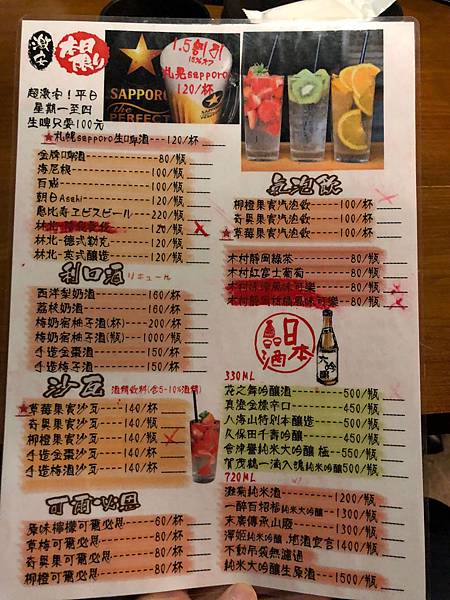 激安
本日限り
超激安!平日
星期一至四
生啤只要100元
SAPPORO
the
PERFECT
1.5割引
15%オフ
札晃sapporo
120/杯
★札幌sapporo生啤酒---120/杯
金牌啤酒---80/瓶
海尼根---100/瓶
百威---100/瓶
朝日Asahi---120/瓶
惠比寿ヱビスビール---220/瓶
林北---120/瓶
林北-德式勃克---120/瓶
林北-英式釀造---120/瓶
利口酒 リキュール
西洋梨奶酒---160/杯
荔枝奶酒---160/杯
梅奶宿柚子酒(杯)---200/杯
梅奶宿柚子酒(瓶)---1000/瓶
手造金棗酒---150/杯
手造梅子酒---150/杯
沙瓦 酒精飲料(含5-10%酒精)
★草莓果實沙瓦---140/杯
奇異果實沙瓦---140/杯
柳橙果實沙瓦---140/杯
手造金棗沙瓦---140/杯
手造梅酒沙瓦---140/杯
可爾必思
原味檸檬可爾必思---60/杯
草莓可爾必思---80/杯
奇異果可爾必思---80/杯
柳橙可爾必思---80/杯
氣泡飲
柳橙果實汽泡飲---100/杯
奇異果實汽泡飲---100/杯
★草莓果實汽泡飲---100/杯
木村靜岡綠茶---80/瓶
木村紅富士葡萄---80/瓶
80/瓶
80/瓶
日本清酒
大吟釀
330ML
花之舞吟釀酒---500/瓶
真澄金標辛口---450/瓶
八海山特別本釀造---500/瓶
久保田千壽吟釀---450/瓶
會津譽純米大吟釀 極---550/瓶
賀茂鶴一滴入魂純米吟釀500/瓶
720ML
灘菊純米酒---1200/瓶
一醉百相福純米大吟釀--1300/瓶
末廣傳承山廢---1300/瓶
澤姬純米吟釀.地酒宣言1400/瓶
不動吊袋無濾過
純米大吟釀生原酒---1500/瓶